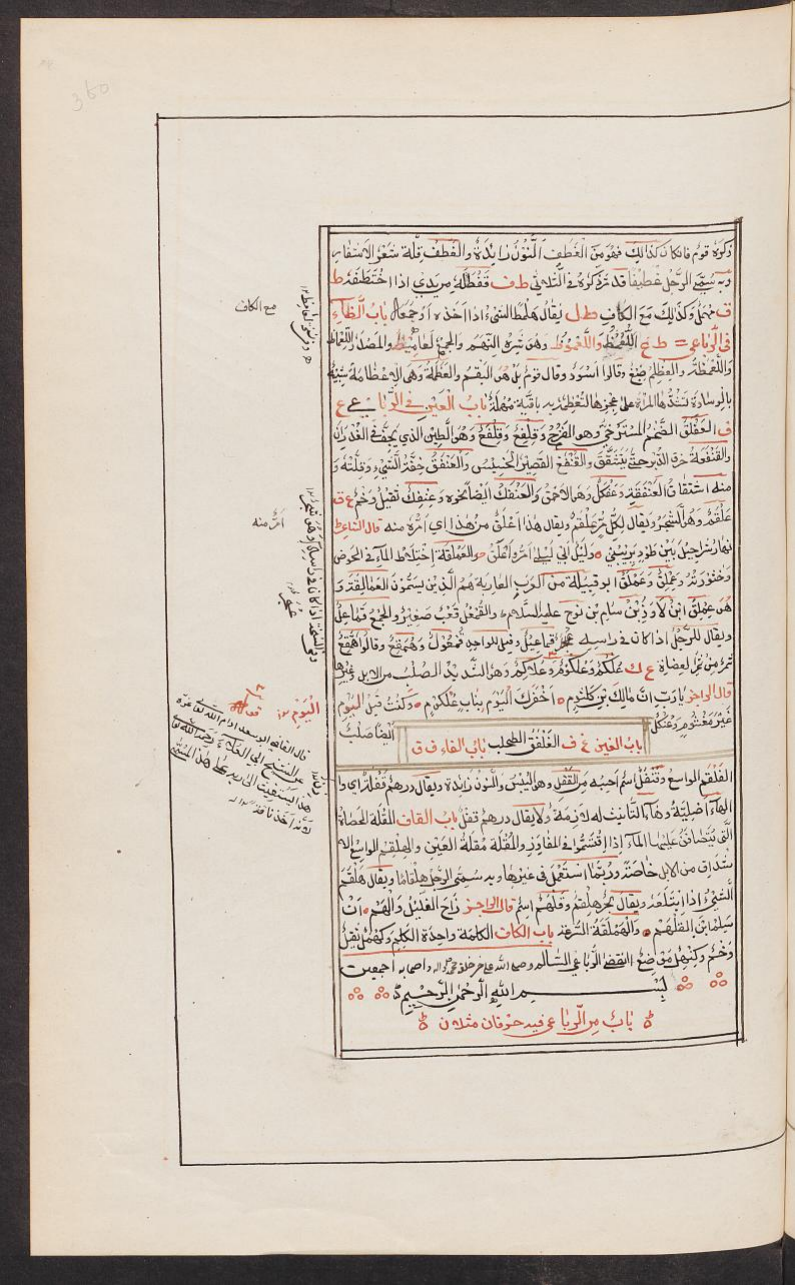 ذكره قوم فان كان كذلك فهو من الغطف النون زائدة والغطف قلة شعر الاشفار
وبه سمي الرجل غطيفا قد مر ذكره في الثلاثي ط ف قفطله من يدي اذا اختطفه ط
ق مهمل وكذلك مع الكاف ط ل يقال هلمط الشيء اذا اخذه او جمعه باب الظاء
في الرباعي ظ غ واللغموظ وهو شره النهم والجمع لعاميظ والمصدر اللعماظ
والعظلم صبغ وقالوا اسود وقال قوم بل هو البقم والعظمة وهي الاعظامة شبيه
بالوسادة تتخذها المرأة على عجزها لتعظم به باقيه مهملة باب العين في الرباعي ع غ
ف العفلق الضخم المسترخي وهو الفرج وقلفع وقلفع وهو الطين الذي يجف في الغدران
والقنفعة خرة الدبر حتى يتفقق والقنفع القصير الخسيس والعنفق خفة الشيء وقلته و
منه اشتقاق العنفقة وعفكل وهو الاحمق والعنفك ايضا نحوه وعنفك ثقيل وخم ع ق
علقم وهو الشجر ويقال لكل مر علقم ويقال هذا اعلق من هذا اي امر منه قال الشاعر
نهار شراحيل بن طود يريبني وليل ابي ليلى امر واعلق والعملقة اختلاط الماء في الحوض
وخثورته وعملق وعملق ابو قبيلة من العرب العاربة هم الذين يسمون العمالقة و
هو عملق ابن لاوذ بن سام بن نوح عليه السلام والقمعل قعب صغير والجمع قماعل
ويقال للرجل اذا كان في راسه عجر قماعيل وقيل للواحد قمعول وهمقع وقالوا همقع
ثمر من ثمر العضاه ع ك علكم وعلكوم وعلاكم وهو الشديد الصلب من الابل وغيرها
قال الراجز يا رب ان مالك بن كلثوم اخفرك اليوم بناب علكوم وكنت قبل اليوم
غير مغشوم وعنكل ايضا صلب
باب الغين غ ف الغلفق الطحلب باب الفاء ف ق
الفلقم الواسع وقنفل اسم احسبه من القفل وهو اليبس والنون زائدة ويقال درهم قفلة اي وا
الهاء اصلية وهاء التأنيث له لازمة ولا يقال درهم قفل باب القاف المقلة الحصاة
التي يتصافن عليها الماء اذا اقتسموا في المفاوز والمقلة مقلة العين والهلقم الواسع الا
شداق من الابل خاصة وربما استعمل في غيرها وبه سمي الرجل هلقاما ويقال هلقم
الشيء اذا ابتلعه ويقال بحر هلقم وقلهم اسم قال الراجز
والهملقة السرعة باب الكاف الكلمة واحدة الكلم وكهمل ثقيل
وخم وكنهل موضع انقضى الرباعي السالم وصلى الله على خير خلقه محمد واله واصحابه اجمعين
بسم الله الرحمن الرحيم
باب من الرباعي فيه حرفان مثلان
مع الكاف
امر منه
عجر
اليوم
قال القاضي ابو سعد ادام الله